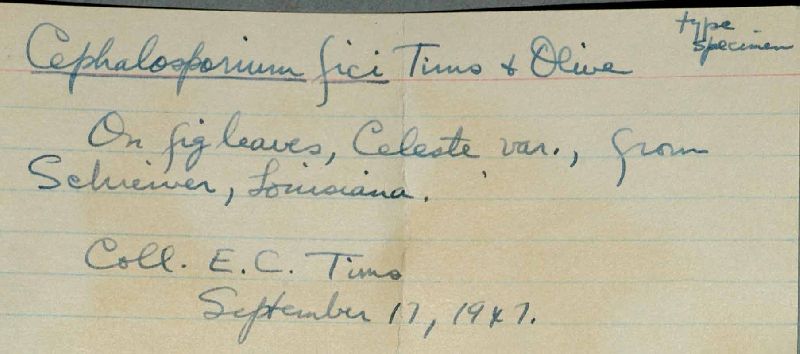 type
specimen
Cephalosporium fici Tims & Olive
On fig leaves, Celeste var., from
Schriever, Louisiana.
Coll. E.C. Tims
September 17, 1947.